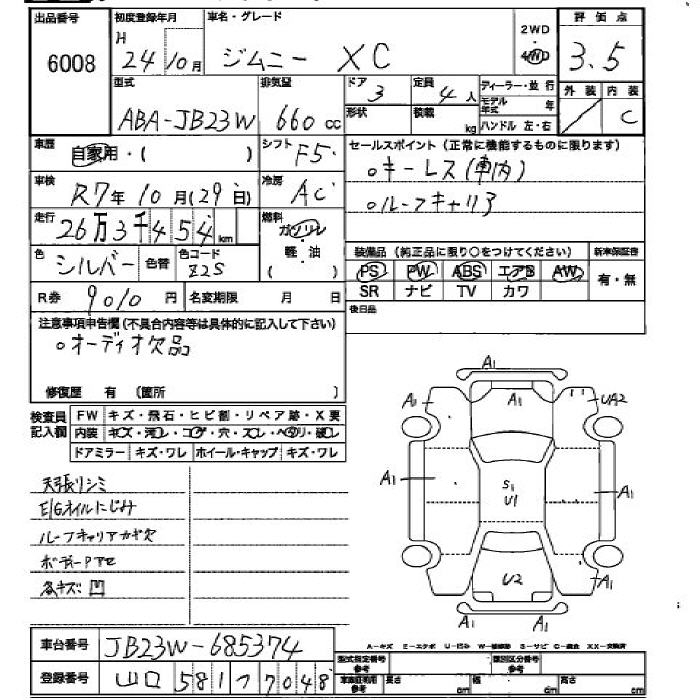 出品番号 初度登録年月 車名・グレード 評価点
6008 H 24年10月 ジムニー XC 2WD 4WD 3.5
型式 排気量 ドア 定員 ディーラー・並行 外装 内装
ABA-JB23W 660cc 3 4人 モデル年式 年 C
形状 積載 kg ハンドル 左・右
車歴 自家用・( ) シフト F5 セールスポイント(正常に機能するものに限ります)
車検 R7年10月(29日) 冷房 AC ○キーレス(車内)
○ルーフキャリア
走行 26万3千454km 燃料 ガソリン
軽油
( )
色 シルバー 色替 色コード Z2S
装備品(純正品に限り○をつけてください) 新車保証書
PS PW ABS エアB AW 有・無
SR ナビ TV カワ
R券 9010円 名変期限 月 日 後日品
注意事項申告欄(不具合内容等は具体的に記入して下さい)
○オーディオ欠品
修復歴 有 (箇所 )
検査員記入欄 FW キズ・飛石・ヒビ割・リペア跡・X要
内装 キズ・汚レ・コゲ・穴・スレ・ヘタリ・破レ
ドアミラー キズ・ワレ ホイール・キャップ キズ・ワレ
天張りシミ
E/Gオイルにじみ
ルーフキャリアカギ欠
ボデーPアセ
各キズ凹
A1
A1 A1 UA2
A1 S1 A1
U1
U2 A1
A1 A1
A-キズ E-エクボ U-凹み W-補修跡 S-サビ C-腐食 XX-交換済
車台番号 JB23W-685374
登録番号 山口 581 つ 7048
型式指定番号 参考 類別区分番号 参考
車庫証明用 参考 長さ cm 幅 cm 高さ cm